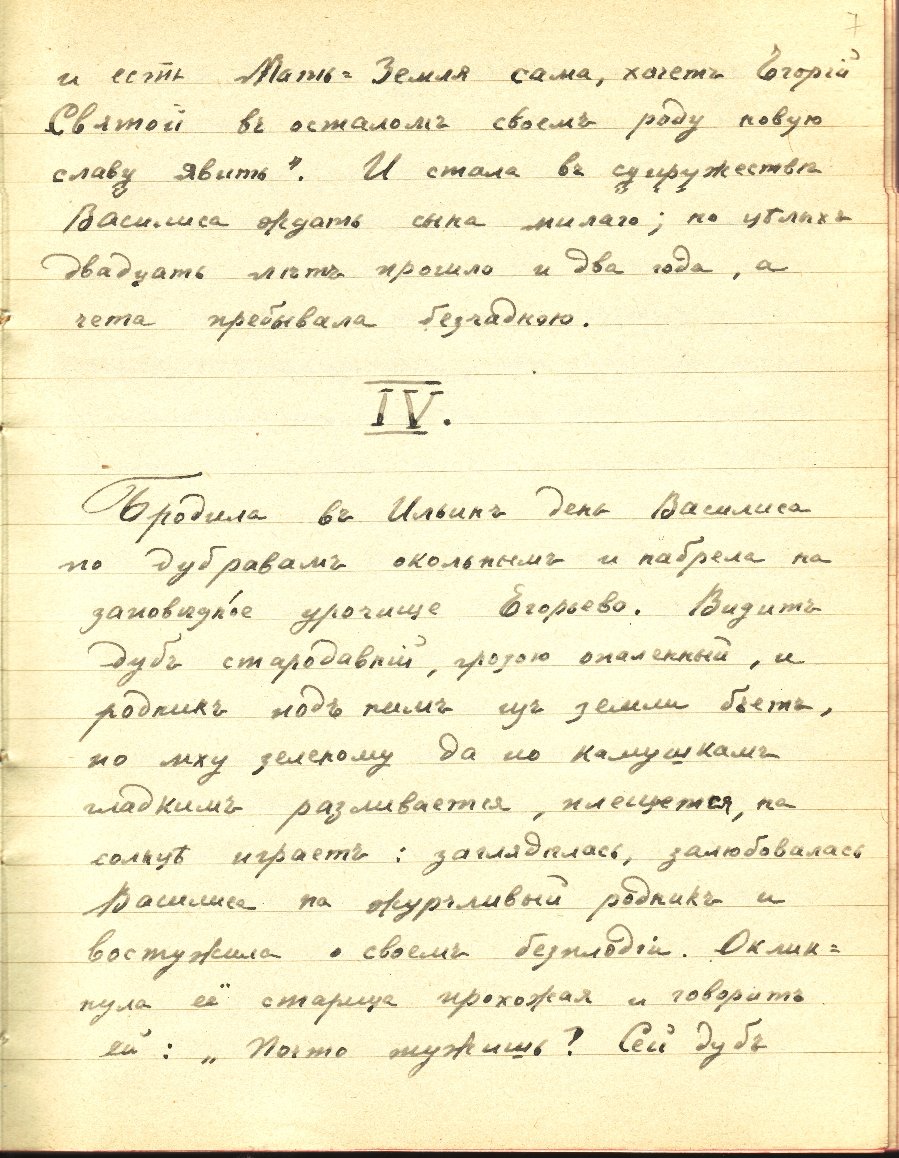 7
и есть Мать-Земля сама, хочетъ Егорій
Святой въ осталомъ своемъ роду новую
славу явить". И стала въ супружествѣ
Василиса ждать сына милаго; но цѣлыхъ
двадцать лѣтъ прошло и два года, а
чета пребывала безчадною.
IV.
Бродила въ Ильинъ день Василиса
по дубравамъ окольнымъ и набрела на
заповѣдное урочище Егорьево. Видитъ
дубъ стародавній, грозою опаленный, и
родникъ подъ нимъ изъ земли бьетъ,
по мху зеленому да по камушкамъ
гладкимъ разливается, плещется, на
солнцѣ играетъ: заглядѣлась, залюбовалась
Василиса на журчливый родникъ и
востужила о своемъ безплодіи. Оклик=
нула её старица прохожая и говоритъ
ей: „Почто тужишь? Сей дубъ